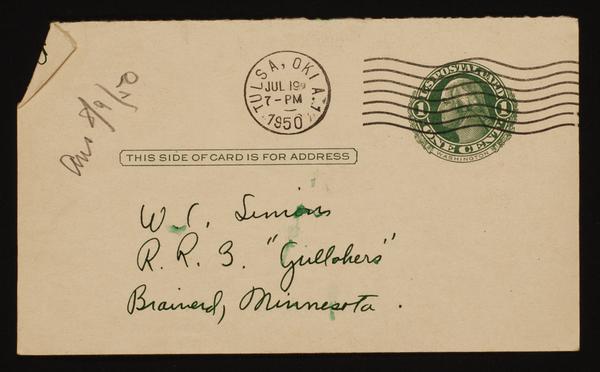 Ans 8/9/50
TULSA, OKLA. 1
JUL 19
7-PM
1950
U.S. POSTAL CARD
1 1
ONE CENT
WASHINGTON
THIS SIDE OF CARD IS FOR ADDRESS
W. C. Simons
R. R. 3. "Gullohers"
Brainerd, Minnesota.